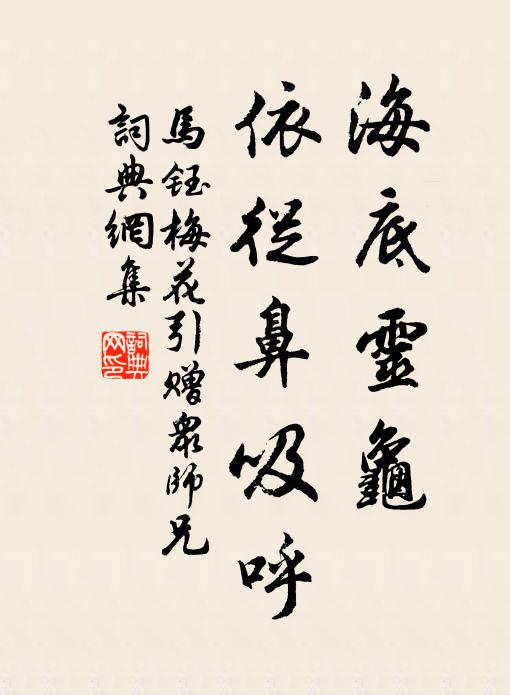 海底靈龜
依從鼻吸呼
馬鈺梅花引贈衆師兄
詞典網集
詞典網印